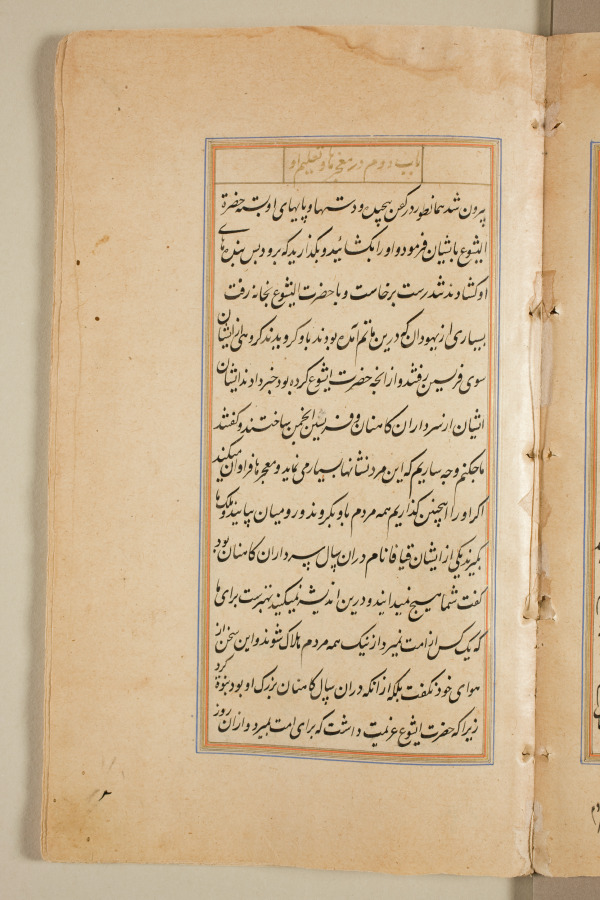 باب دوم در معجزها و تعلیم او
بیرون شد همانطور در کفن پیچیده و دستها و پایهای او بسته حضرة
ایشوع بایشان فرمود و او را بکشائید و بکذارید که برود پس بندهای
او کشادند تندرست برخاست و با حضرت ایشوع بخانه رفت
بسیاری از یهودان که درین ماتم آمده بودند باو کرویدند کروهی از ایشان
سوی فریسین رفتند و از انچه حضرت ایشوع کرده بود خبر دادند ایشان
ایشان از سرداران کاهنان و فریسین انجمن ساختند و کفتند
ما چکنیم و چه سازیم که این مرد نشانها بسیار می نماید و معجزها فراوان میکند
اکر او را همچنین کذاریم همه مردم باو بکروند و رومیان بیایند و ملک ما
بگیرند یکی از ایشان قیافا نام دران سال سرداران کاهنان بود
کفت شما هیچ نمیدانید و درین اندیشه نمیکنید بهترست برای ما
که یک کس از امت بمیرد از نیک همه مردم هلاک شوند و این سخن از
هوای خود نکفت بلکه از انکه دران سال کاهنان بزرک او بود نبوة کرد
زیرا که حضرت ایشوع عزیمت داشت که برای امت بمیرد و ازان روز